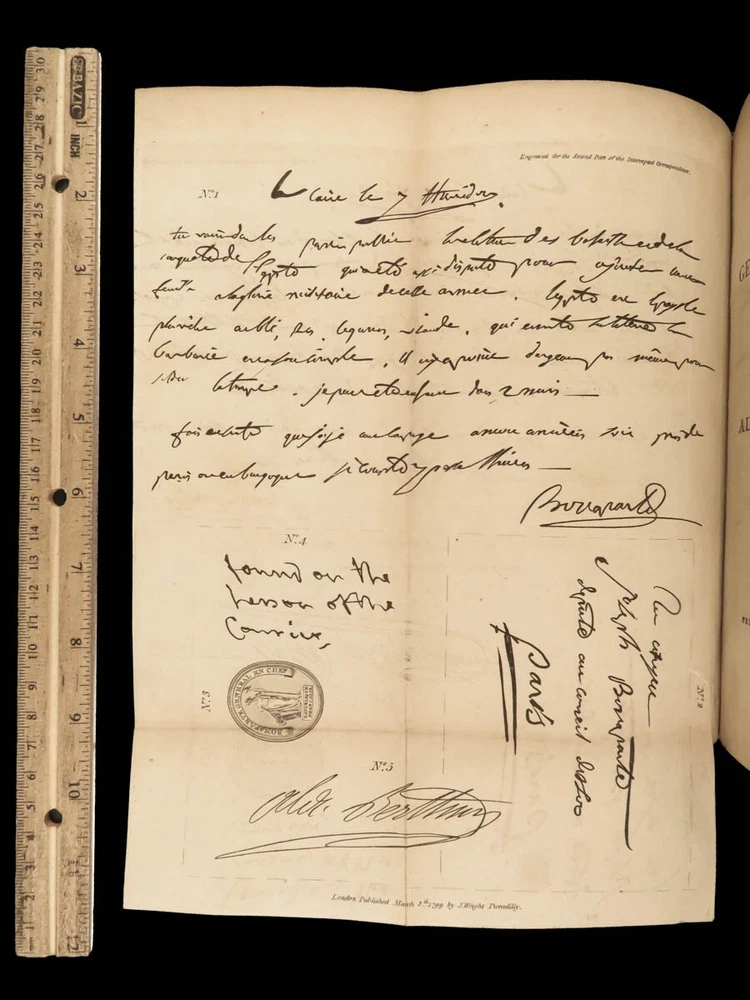 Engraved for the Second Part of the Intercepted Correspondence.
N.º 1
Caire le 7 Thermidor.
tu verras dans les papiers publics la relation des batailles et de la
conquête de l'Egypte qui a été assé disputé pour ajouter une
feuille à la gloire militaire de cette armée. l'egypte est le pays le
plus riche en blé, ris, legumes, viande, qui existe sur la terre la
barbarie est a son comble. il n'y a point d'argent pas même pour
solder la troupe. je peux être en france dans 2 mois
fais en sorte que j'aye une campagne a mon arrivée soit près de
paris ou en bourgogne je compte y passer l'hiver
Bonaparte
N.º 4
found on the
person of the
Courier,
N.º 3
BONAPARTE GENERAL EN CHEF
N.º 2
Au citoyen
Joseph Bonaparte
deputé au conseil des 500
Paris
N.º 5
Alex. Berthier
London Published March 3.th 1799 by J. Wright Piccadilly.
BAZIC
INCH
1
2
3
4
5
6
7
8
9
10
11
12
30
29
28
27
26
25
24
23
22
21
20
19
18
17
16
15
14
13
12
11
10
9
8
7
6
5
4
3
2
1